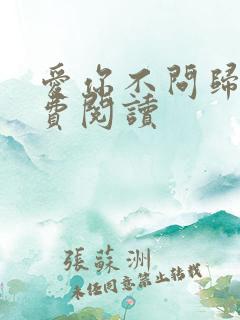 愛你不問歸
費閱讀
張蘇洲
未經同意禁止轉載